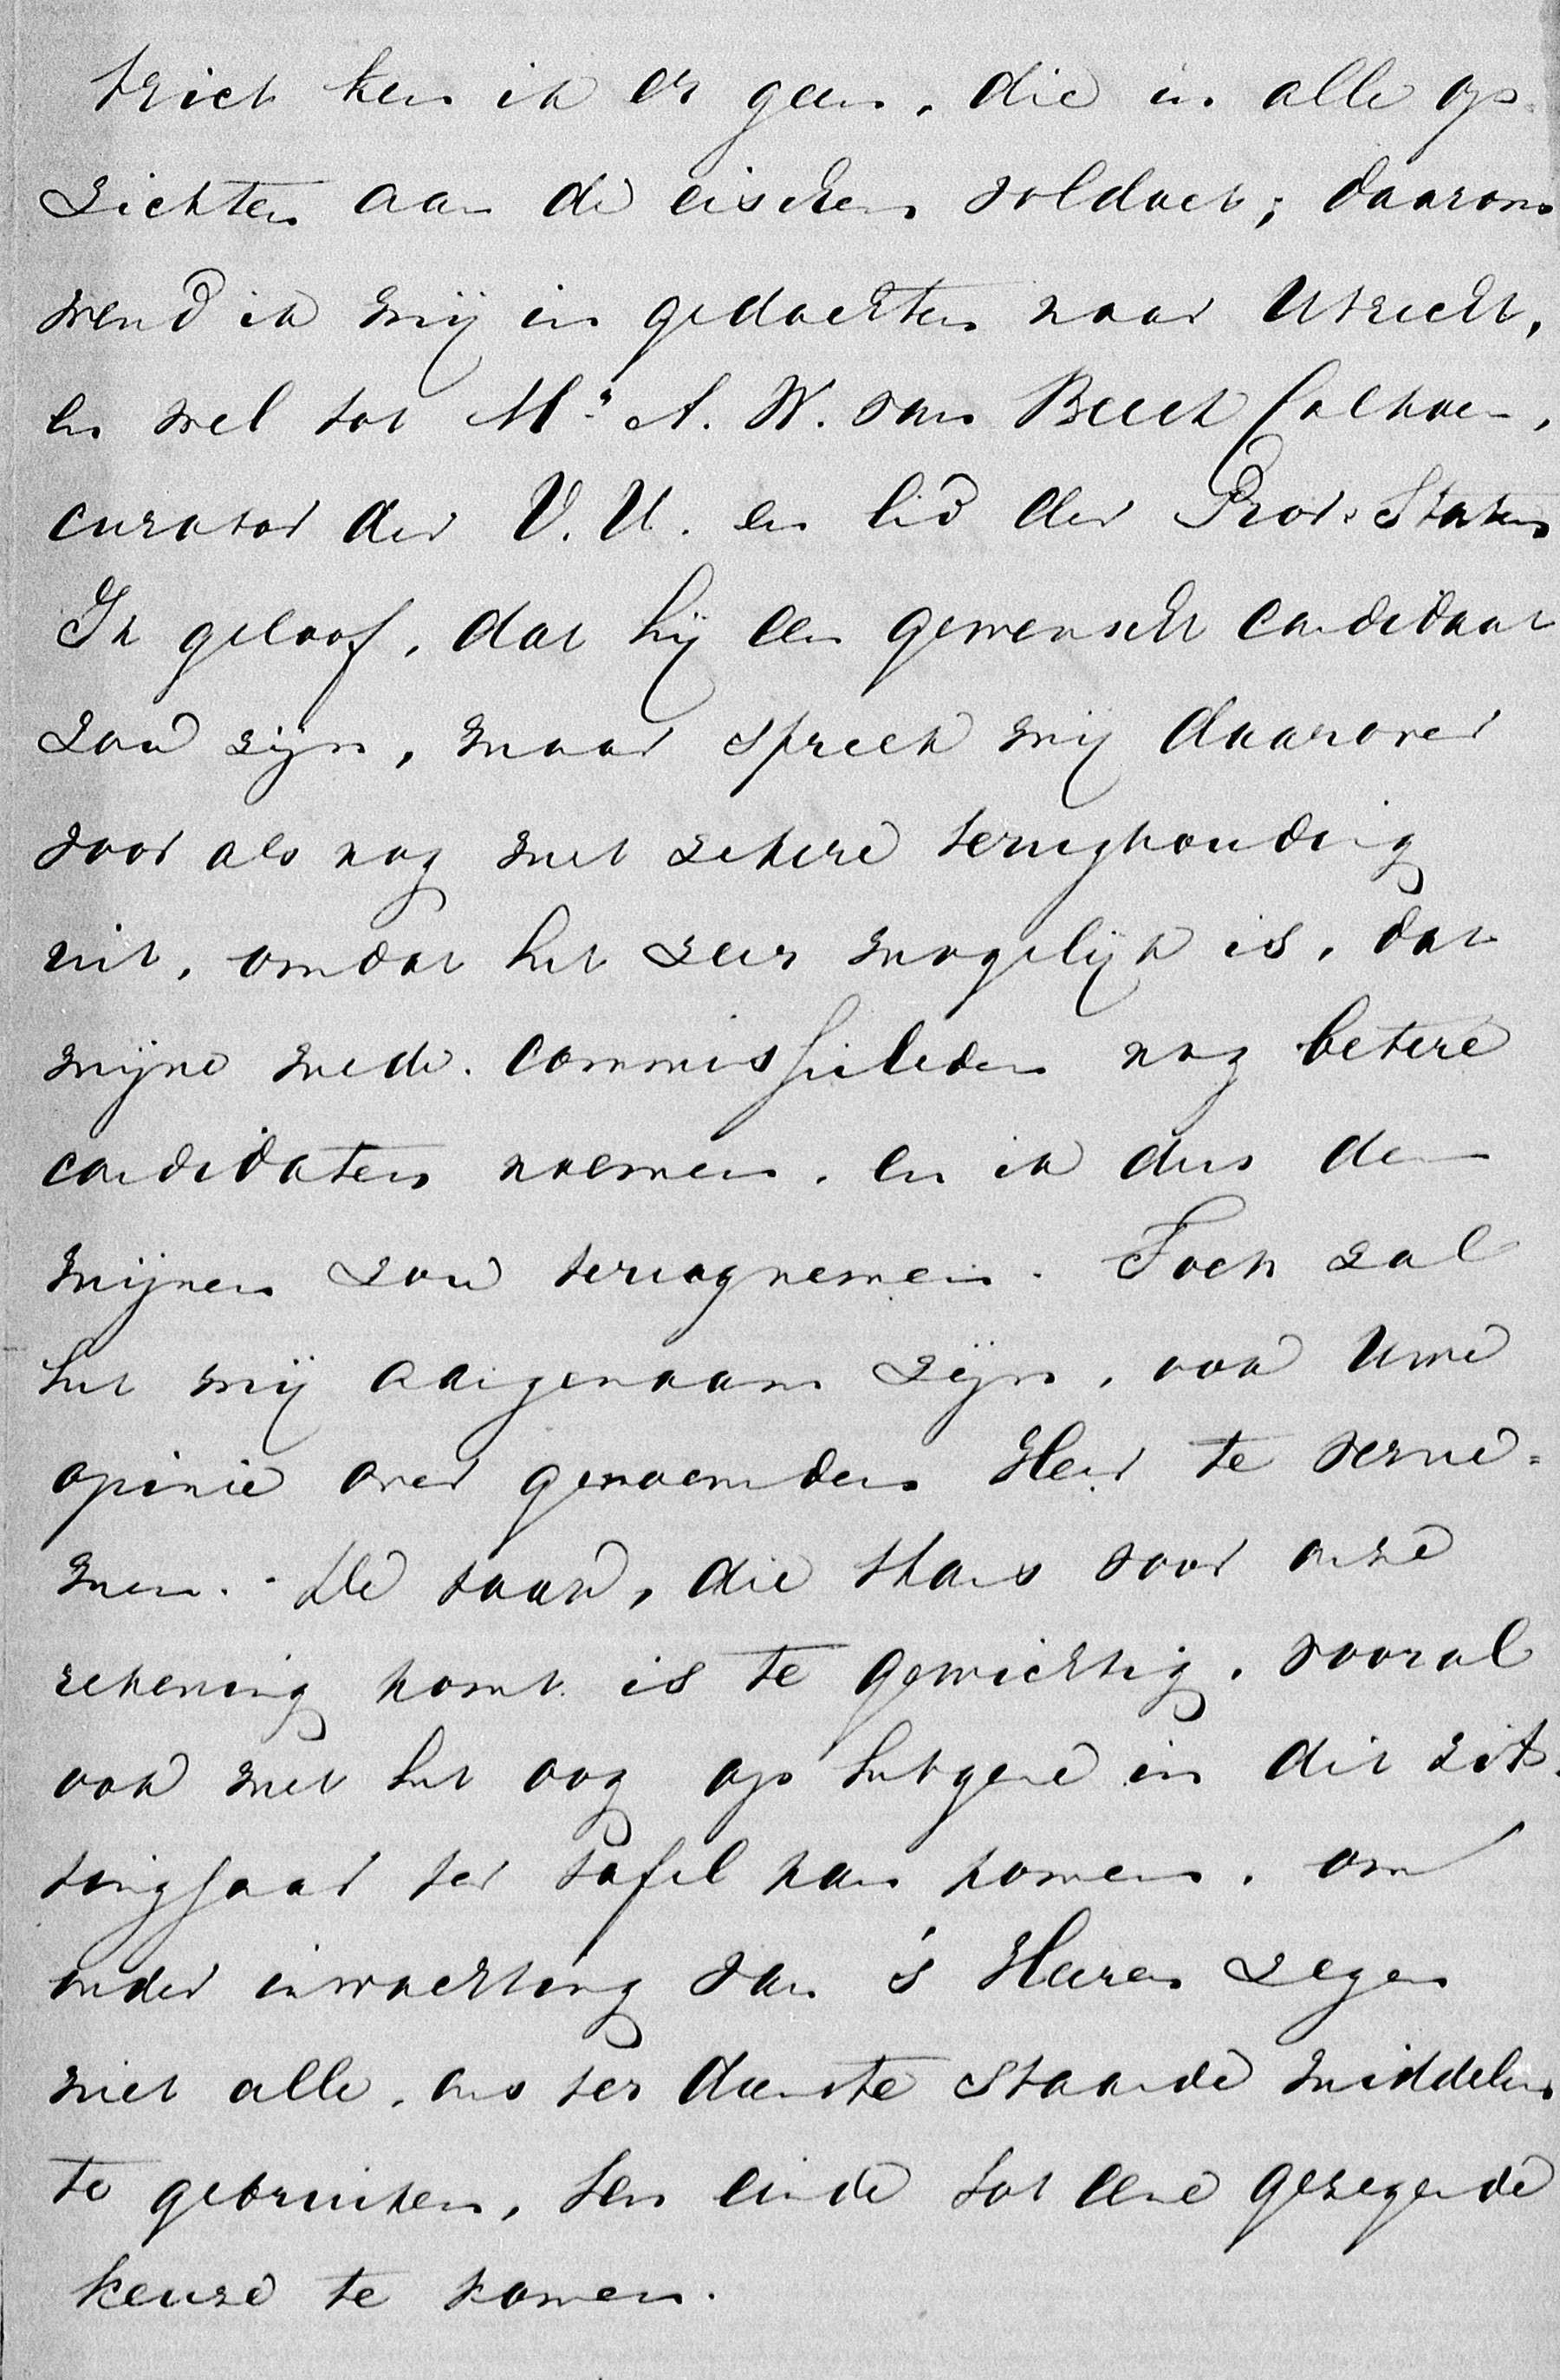 trict ken ik er geen, die in alle op-
zichten aan de eischen voldoet; daarom
wend ik mij in gedachten naar Utrecht,
en wel tot Mr. A. W. van Beeck Calkoen,
curator der V. U. en lid der Prov. Staten
Ik geloof, dat hij een gewenscht candidaat
zou zijn, maar spreek mij daarover
voor als nog met zekere terughouding
uit, omdat het zeer mogelijk is, dat
mijne mede-commissieleden nog betere
candidaten noemen, en ik dus den
mijnen zou terugnemen. Toch zal
het mij aangenaam zijn, ook Uwe
opinie over genoemden Heer te verne=
men. - De taak, die thans voor onze
rekening komt is te gewichtig, vooral
ook met het oog op hetgene in dit zit-
tingjaar ter tafel kan komen, om
onder inwachting van 's Heeren zegen
niet alle, ons ter dienste staande middelen
te gebruiken, ten einde tot eene gezegende
keuze te komen.